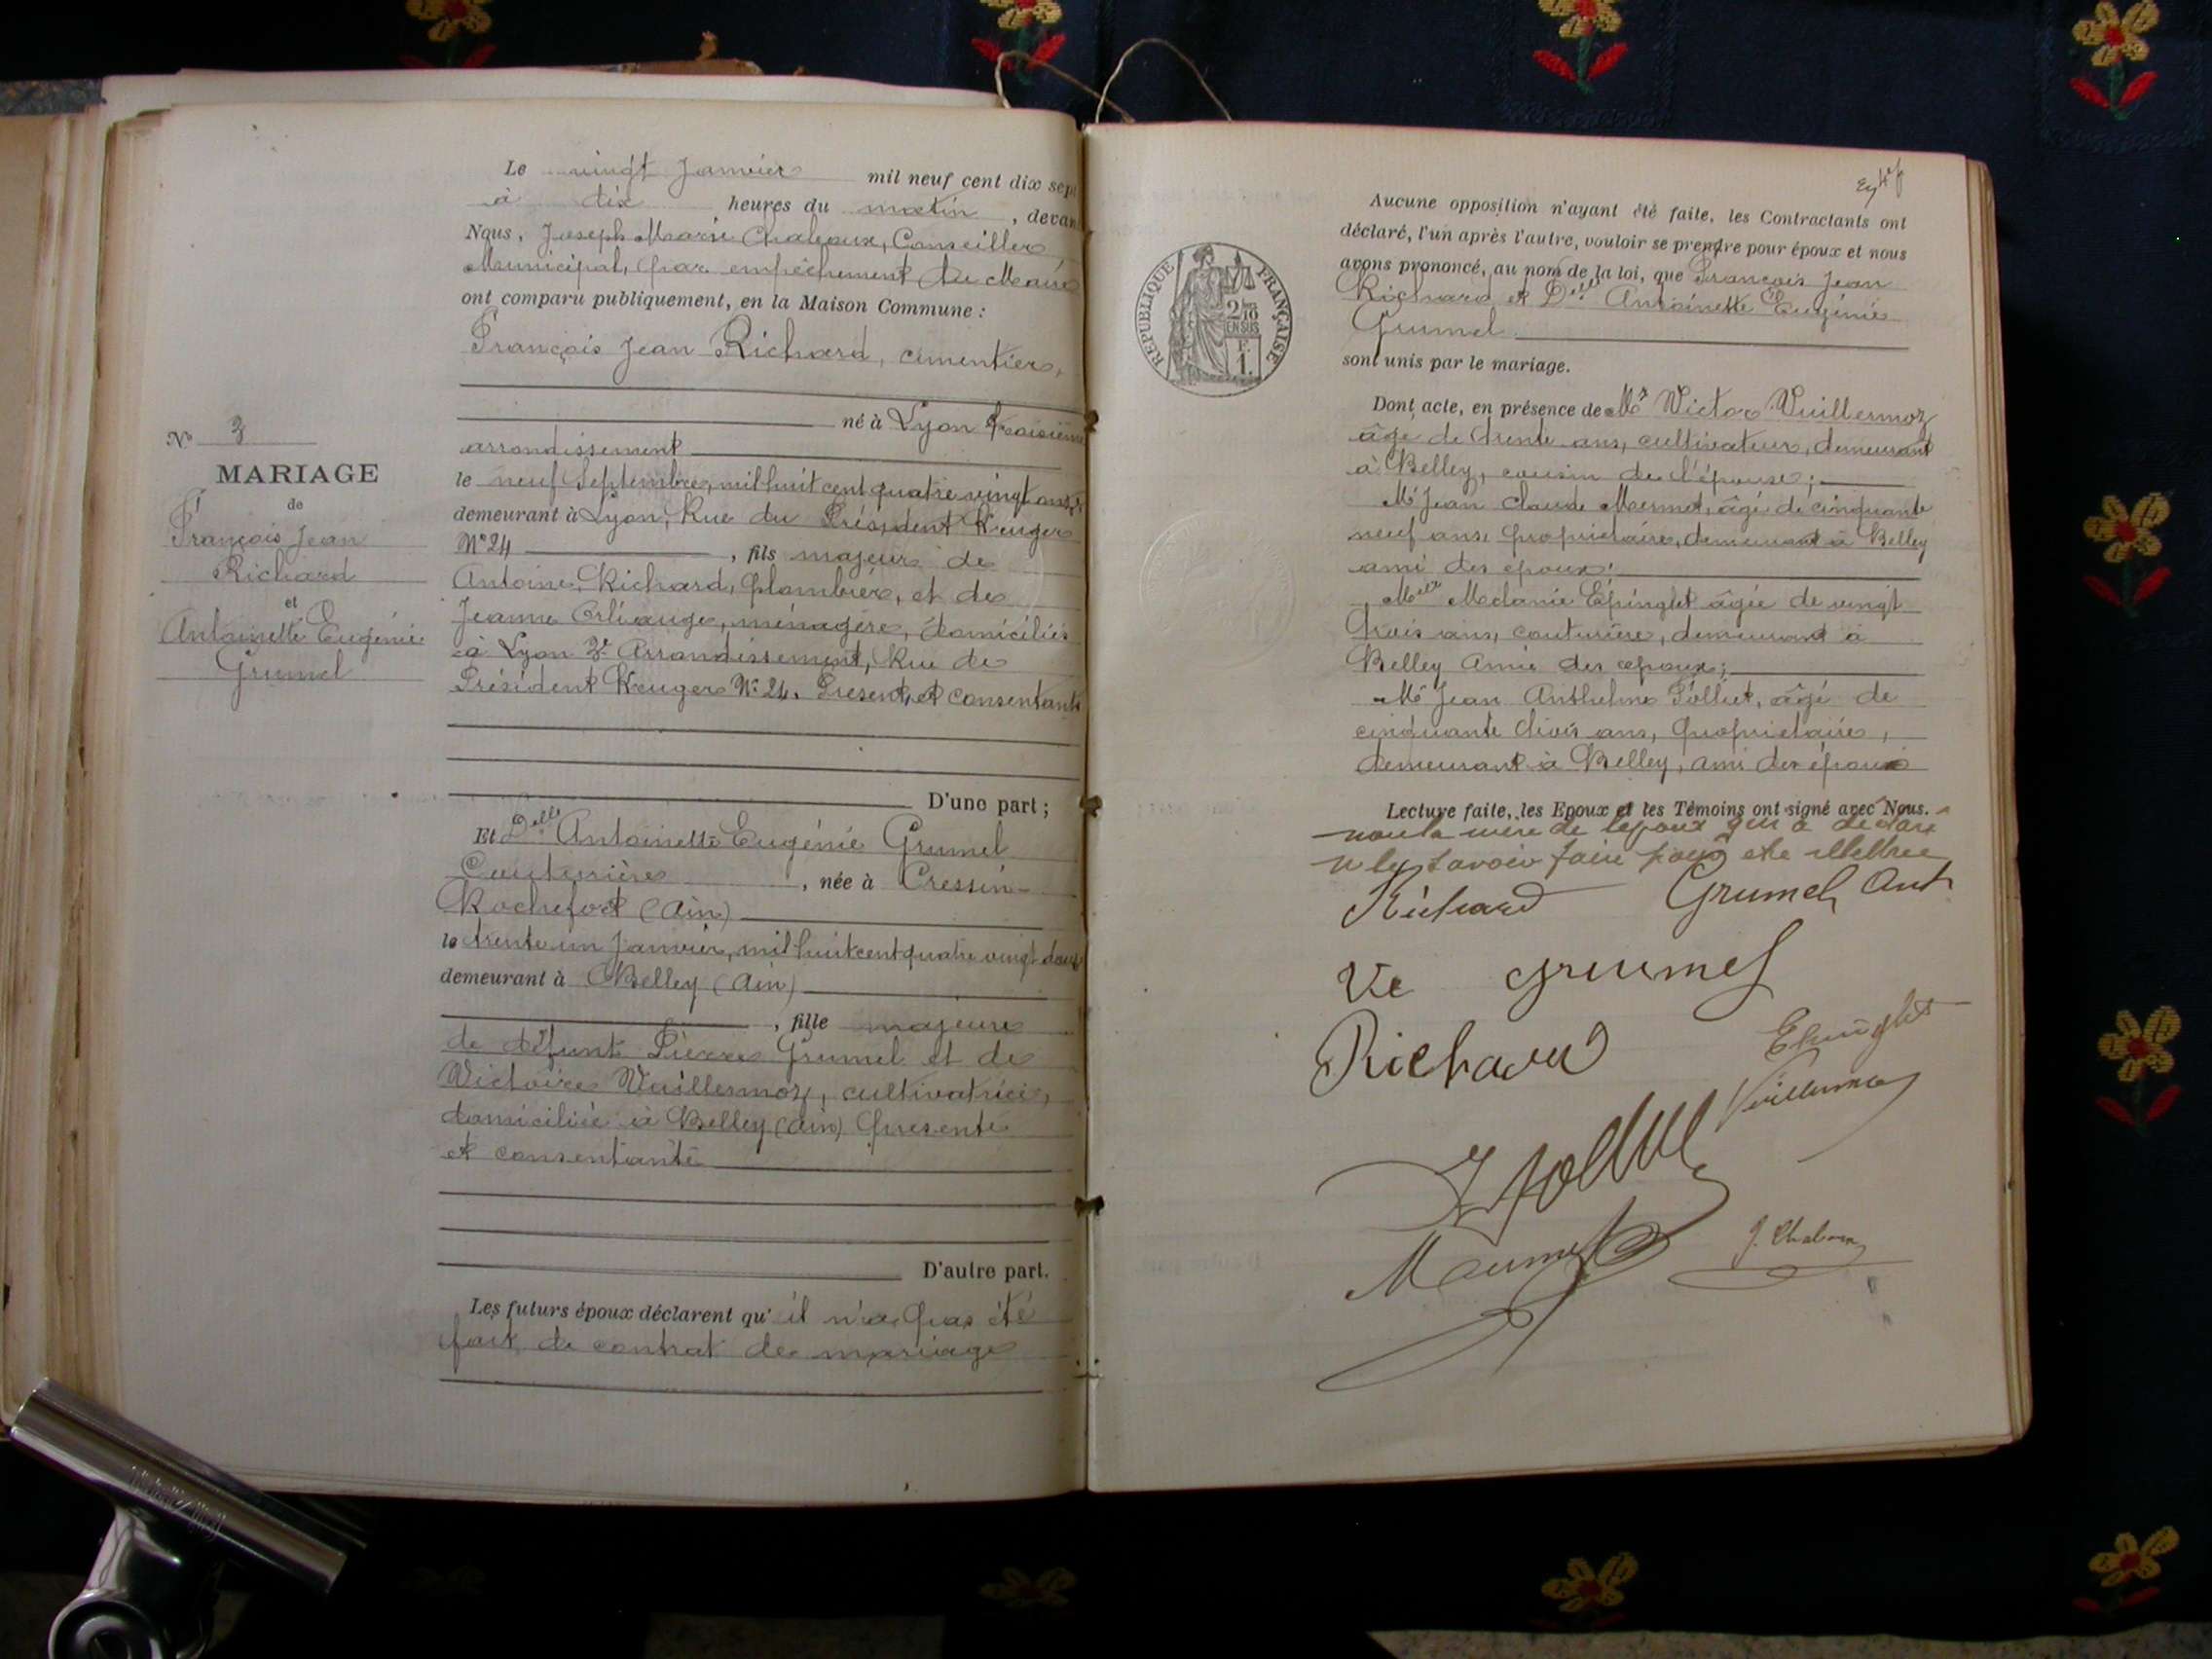 Le vingt Janvier mil neuf cent dix sept
à dix heures du matin, devan
Nous, Joseph Marie Chaboux, Conseiller
Municipal, par empêchement du Maire
ont comparu publiquement, en la Maison Commune :
François Jean Richard, cimentier,
né à Lyon troisième
arrondissement
le neuf Septembre, mil huit cent quatre vingt onze,
demeurant à Lyon, Rue du Président Kruger
N° 24, fils majeur de
Antoine Richard, plombier, et de
Jeanne Orliange, ménagère, domiciliés
à Lyon 3e Arrondissement, Rue de
Président Kruger N° 24. Présent, et consentants
D'une part ;
N° 3
MARIAGE
de
François Jean
Richard
et
Antoinette Eugénie
Grumel
Et Delle Antoinette Eugénie Grumel
Couturière, née à Cressin-
Rochefort (Ain)
le trente un Janvier, mil huit cent quatre vingt douze
demeurant à Belley (Ain)
, fille majeure
de défunt Pierre Grumel et de
Victoire Vuillermoz, cultivatrice,
domiciliée à Belley (Ain) présente
et consentante
D'autre part.
Les futurs époux déclarent qu'il n'a pas été
fait de contrat de mariage
Aucune opposition n'ayant été faite, les Contractants ont
déclaré, l'un après l'autre, vouloir se prendre pour époux et nous
avons prononcé, au nom de la loi, que François Jean
Richard et Delle Antoinette Eugénie
Grumel
sont unis par le mariage.
RÉPUBLIQUE FRANÇAISE
2/10
EN SUS
F.
1.
Dont acte, en présence de Mr Victor Vuillermoz
âgé de trente ans, cultivateur, demeurant
à Belley, cousin de l'épouse;
Mr Jean Claude Mermet, âgé de cinquante
neuf ans, propriétaire, demeurant à Belley
ami des époux;
Melle Mélanie Epinglet âgée de vingt
trois ans, couturière, demeurant à
Belley Amie des époux;
Mr Jean Anthelme Pollet, âgé de
cinquante trois ans, propriétaire,
demeurant à Belley, ami des époux
Lecture faite, les Epoux et les Témoins ont signé avec Nous.
non la mère de l'époux qui a déclaré
ne le savoir faire pour être illettrée
Richard Grumel Ant
Ve Grumel
Richard Epinglet
Vuillermoz
Mermet J. Chaboux